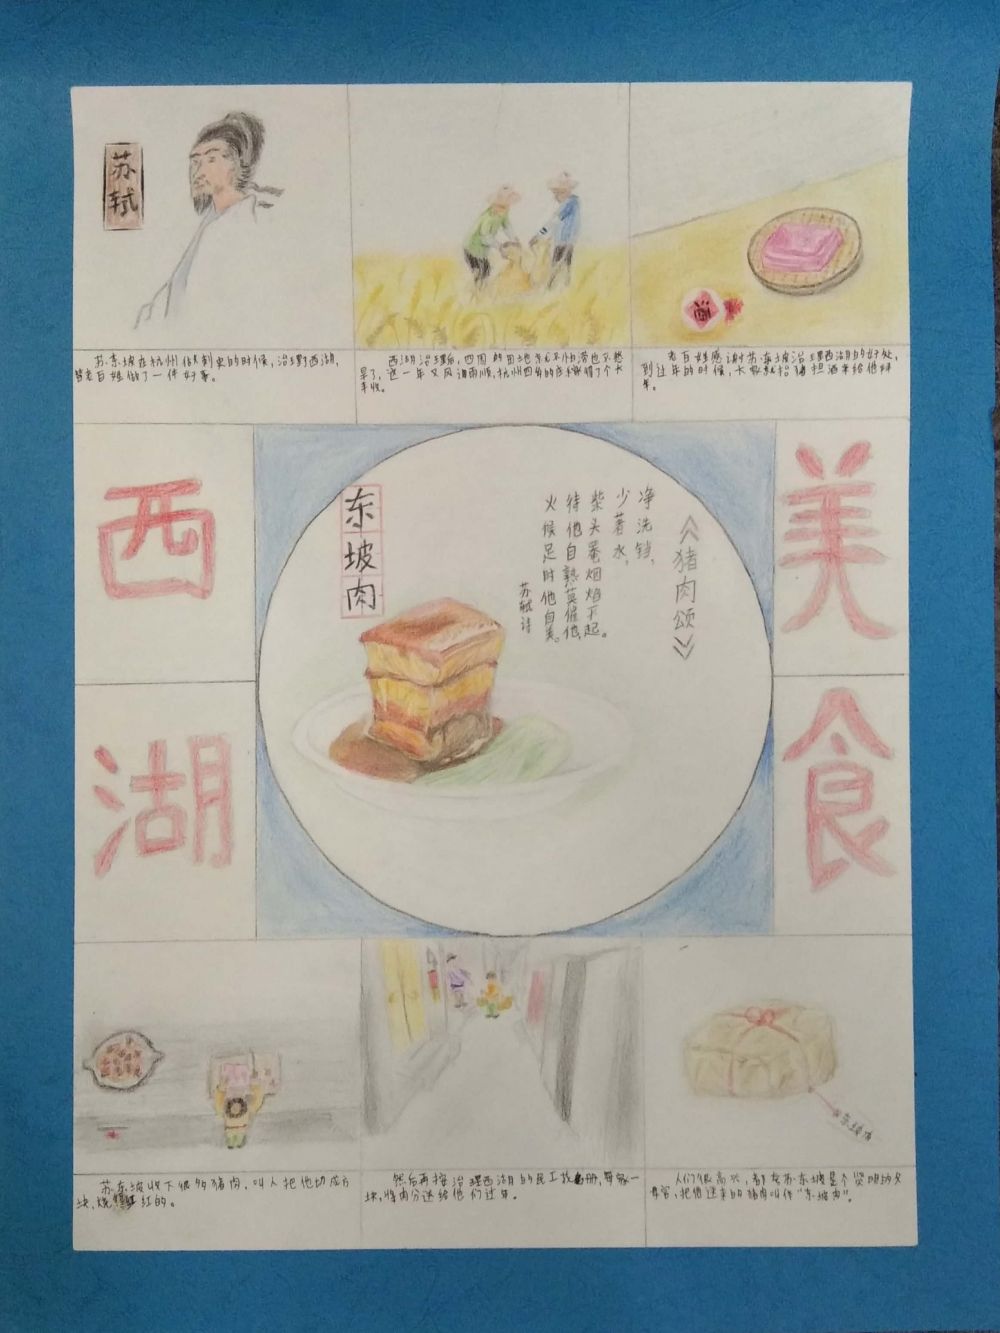 苏轼
苏东坡在杭州做刺史的时候，治理了西湖，
替老百姓做了一件好事。
西湖治理后，四周的田地就不怕涝也不愁
旱了，这一年又风调雨顺，杭州四乡的庄稼得了个大
丰收。
酒
老百姓感谢苏东坡治理西湖的好处，
到过年的时候，大家就抬猪担酒来给他拜
年。
西湖
美食
东坡肉
《猪肉颂》
净洗铛，
少著水，
柴头罨烟焰不起。
待他自熟莫催他，
火候足时他自美。
苏轼诗
苏东坡收下很多猪肉，叫人把他切成方
块，烧得红红的。
然后再按治理西湖的民工花名册，每家一
块，将肉分送给他们过年。
东坡肉
人们很高兴，都夸苏东坡是个贤明的父
母官，把他送来的猪肉叫作“东坡肉”。